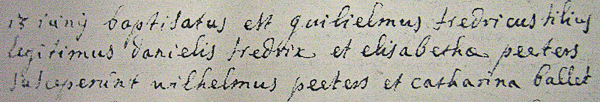 13 iunij baptisatus est guilielmus fredricus filius
legitimus danielis fredrix et elisabetha peeters
susceperunt wilhelmus peeters et catharina ballet